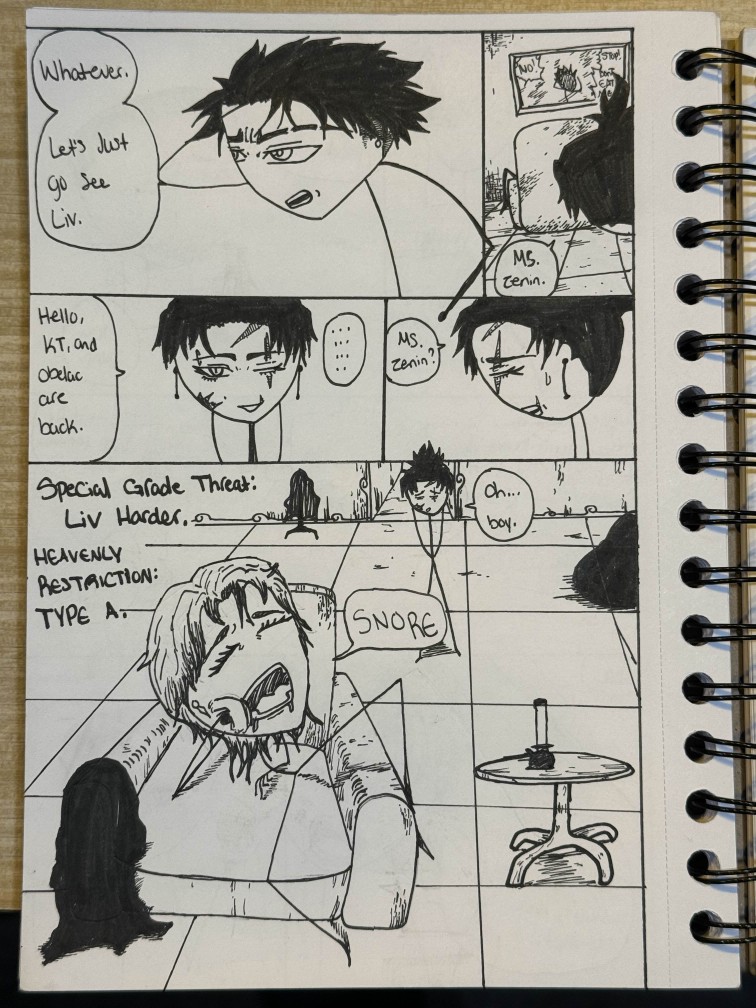 Whatever.
Let's Just
go See
Liv.
NO!
STOP!
DON'T
EAT
ME
Ms.
Zenin.
Hello,
KT, and
obelac
are
back.
......
Ms.
Zenin?
Special Grade Threat:
Liv Harder.
HEAVENLY
RESTRICTION:
TYPE A.
Oh...
boy.
SNORE